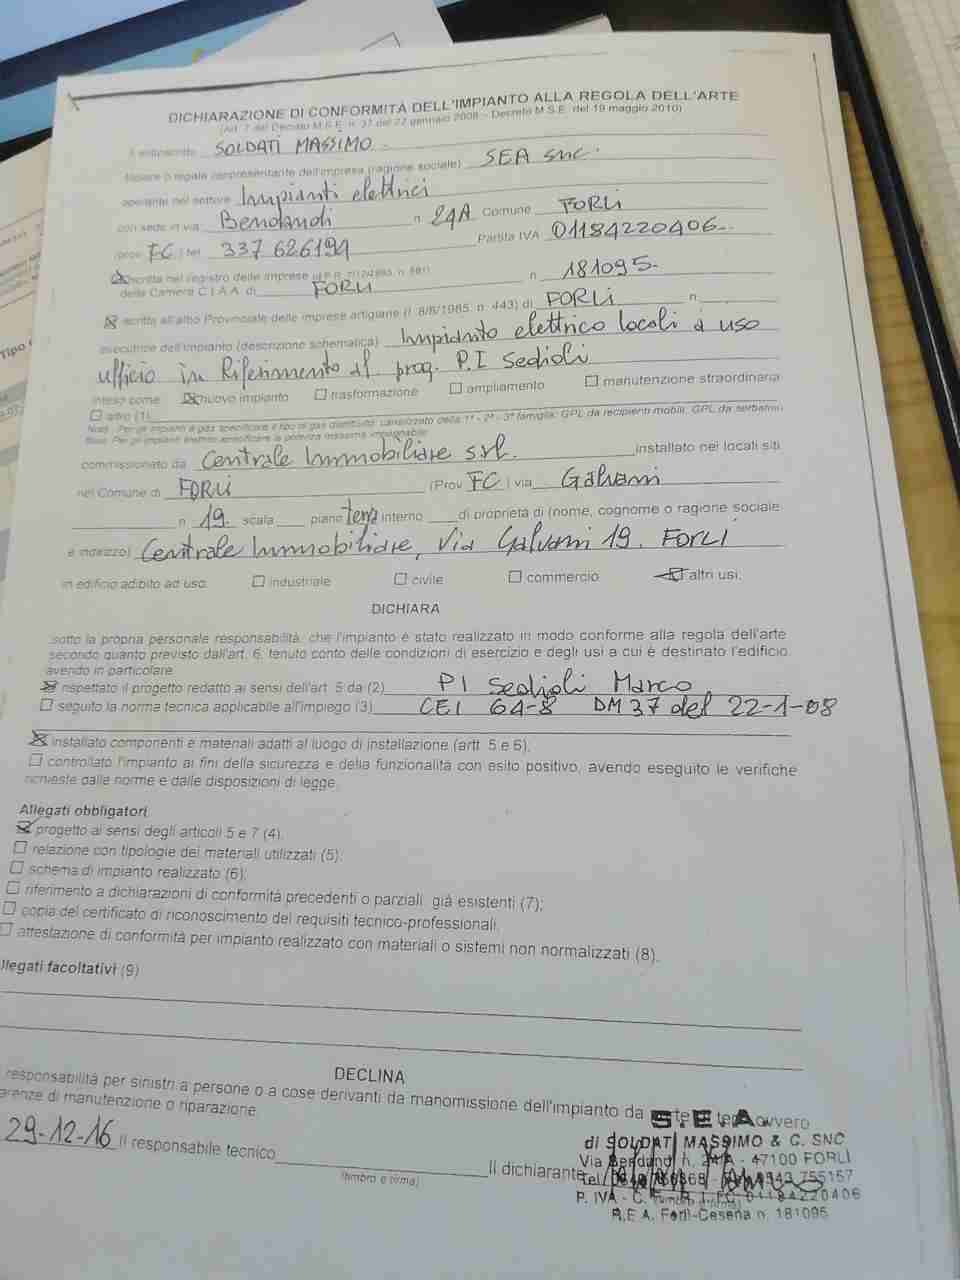 DICHIARAZIONE DI CONFORMITÀ DELL'IMPIANTO ALLA REGOLA DELL'ARTE
(Art. 7 del Decreto M.S.E. n. 37 del 22 gennaio 2008 - Decreto M.S.E. del 19 maggio 2010)
Il sottoscritto SOLDATI MASSIMO
titolare o legale rappresentante dell'impresa (ragione sociale) SEA snc.
operante nel settore Impianti elettrici
con sede in via Bendandi n. 24A Comune FORLI
(prov. FC) tel. 337 626194 Partita IVA 01184220406
iscritta nel registro delle imprese n. 181095
della Camera C.I.A.A. di FORLI
iscritta all'albo Provinciale delle imprese artigiane (l. 8/8/1985, n. 443) di FORLI n.
esecutrice dell'impianto (descrizione schematica) Impianto elettrico locali a uso
ufficio in Riferimento al prog. P.I Sedioli
inteso come: nuovo impianto trasformazione ampliamento manutenzione straordinaria
altro (1)
Nota: Per gli impianti a gas specificare il tipo di gas distribuito: canalizzato della 1ª - 2ª - 3ª famiglia; GPL da recipienti mobili; GPL da serbatoio
Nota: Per gli impianti elettrici specificare la potenza massima impegnabile
commissionato da Centrale Immobiliare srl. installato nei locali siti
nel Comune di FORLI (Prov FC) via Galvani
n. 19. scala piano terra interno di proprietà di (nome, cognome o ragione sociale
e indirizzo) Centrale Immobiliare, Via Galvani 19. FORLI
in edificio adibito ad uso: industriale civile commercio altri usi;
DICHIARA
sotto la propria personale responsabilità, che l'impianto è stato realizzato in modo conforme alla regola dell'arte
secondo quanto previsto dall'art. 6, tenuto conto delle condizioni di esercizio e degli usi a cui è destinato l'edificio,
avendo in particolare
rispettato il progetto redatto ai sensi dell'art. 5 da (2) PI Sedioli Marco
seguito la norma tecnica applicabile all'impiego (3) CEI 64-8 DM37 del 22-1-08
installato componenti e materiali adatti al luogo di installazione (artt. 5 e 6);
controllato l'impianto ai fini della sicurezza e della funzionalità con esito positivo, avendo eseguito le verifiche
richieste dalle norme e dalle disposizioni di legge.
Allegati obbligatori
progetto ai sensi degli articoli 5 e 7 (4);
relazione con tipologie dei materiali utilizzati (5);
schema di impianto realizzato (6);
riferimento a dichiarazioni di conformità precedenti o parziali, già esistenti (7);
copia del certificato di riconoscimento dei requisiti tecnico-professionali.
attestazione di conformità per impianto realizzato con materiali o sistemi non normalizzati (8).
llegati facoltativi (9)
DECLINA
responsabilità per sinistri a persone o a cose derivanti da manomissione dell'impianto da ovvero
arenze di manutenzione o riparazione.
29-12-16 Il responsabile tecnico Il dichiarante
(timbro e firma)
S.E.A.
di SOLDATI MASSIMO & C. SNC
Via Bendandi n. 24/A - 47100 FORLI
P. IVA - C.F. - R.I. FC 01184220406
R.E.A. Forlì-Cesena n. 181095